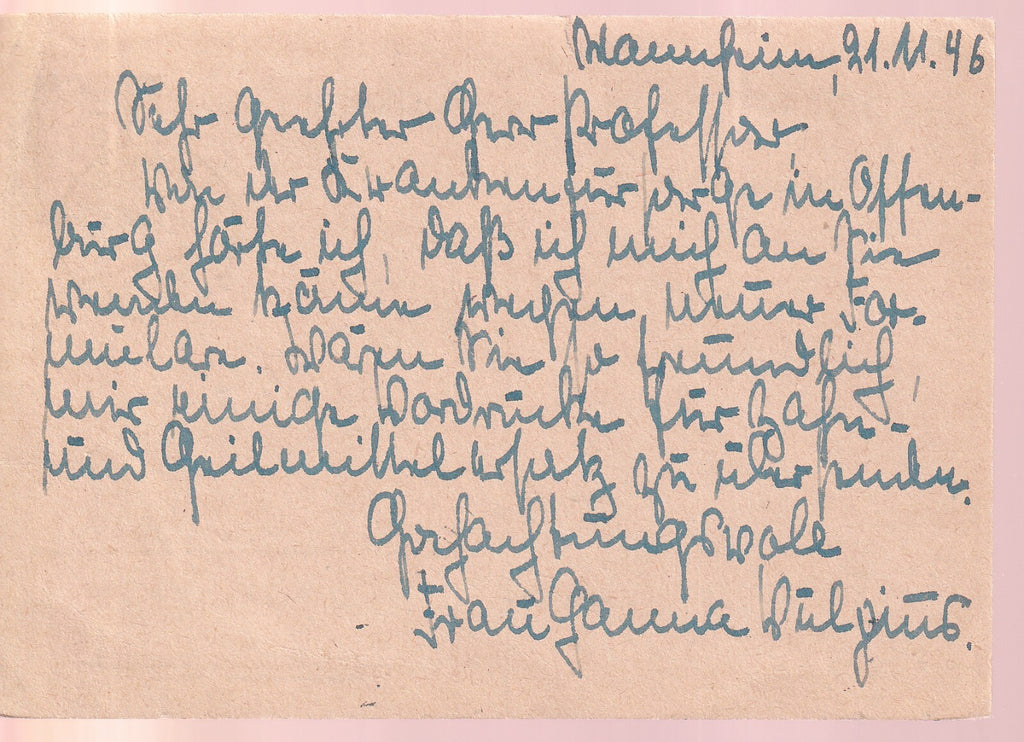 Mannheim, 21.11.46
Sehr geehrter Herr Professor,
von der Krankenfürsorge in Offen-
burg hörte ich, daß ich mich an Sie
wenden könne wegen neuer For-
mulare. Wären Sie so freundlich,
mir einige Vordrucke für Zahn-
und Heilmittelersatz zu übersenden.
Hochachtungsvoll
Frau Hanna Vulpius.